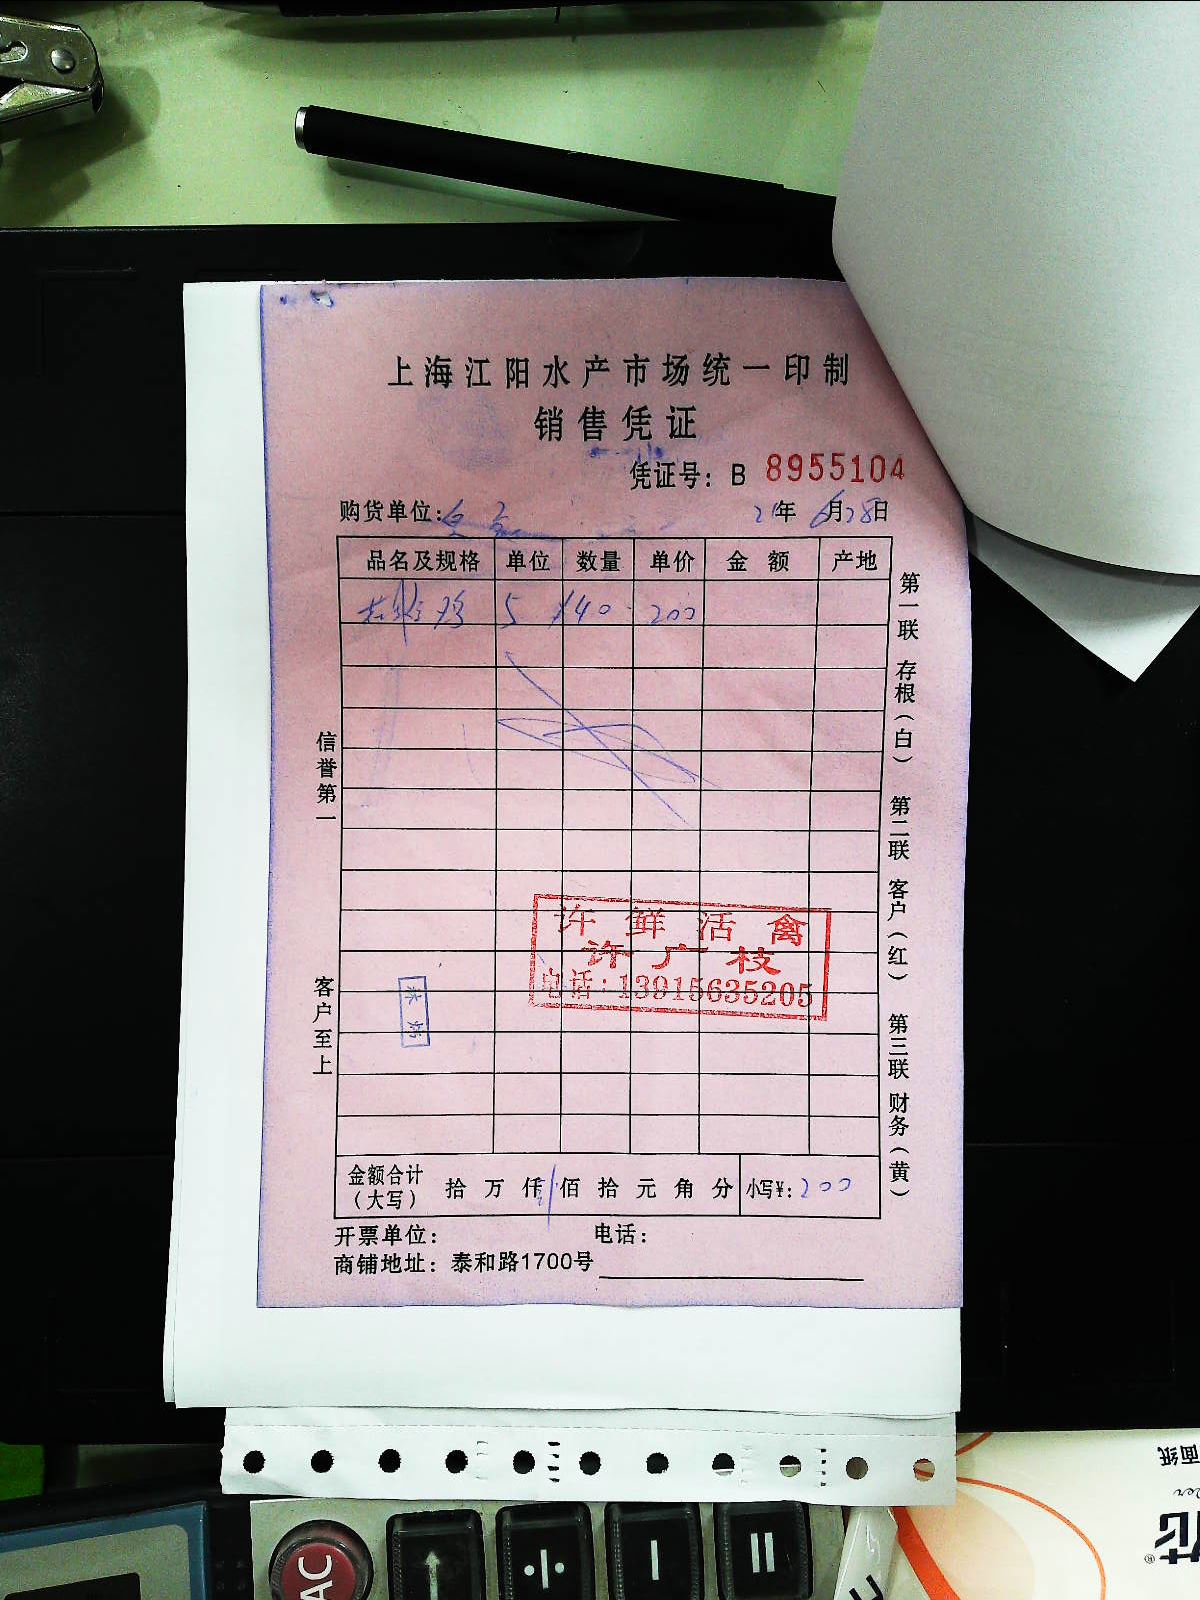 上海江阳水产市场统一印制
销售凭证
凭证号：B 8955104
购货单位： 21年 6月28日
品名及规格 单位 数量 单价 金额 产地
鸡 5 140 200
第一联 存根（白） 第二联 客户（红） 第三联 财务（黄）
信誉第一 客户至上
许鲜活禽
许广枝
电话：13915635205
金额合计（大写） 拾 万 仟 佰 拾 元 角 分 小写¥：200
开票单位： 电话：
商铺地址：泰和路1700号
AC ↑ ÷ − =
面纸
花®